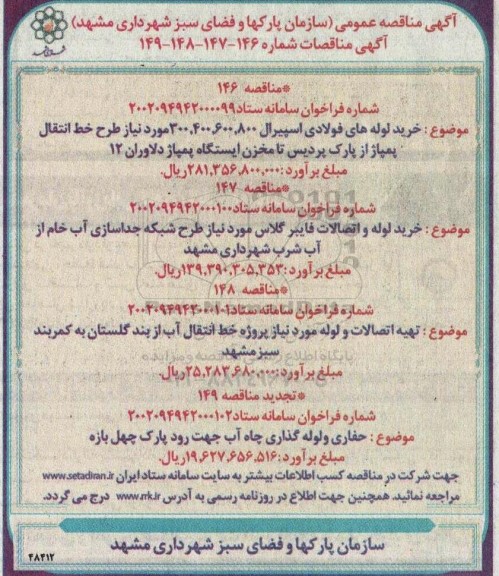 آگهی مناقصه عمومی (سازمان پارکها و فضای سبز شهرداری مشهد)
آگهی مناقصات شماره ۱۴۶-۱۴۷-۱۴۸-۱۴۹
*مناقصه ۱۴۶
شماره فراخوان سامانه ستاد۲۰۰۲۰۹۴۹۴۲۰۰۰۰۹۹
موضوع : خرید لوله های فولادی اسپیرال ۳۰۰،۴۰۰،۶۰۰،۸۰۰مورد نیاز طرح خط انتقال
پمپاژ از پارک پردیس تا مخزن ایستگاه پمپاژ دلاوران ۱۲
مبلغ برآورد :۲۸۱،۳۵۶،۸۰۰،۰۰۰ریال.
*مناقصه ۱۴۷
شماره فراخوان سامانه ستاد۲۰۰۲۰۹۴۹۴۲۰۰۰۱۰۰
موضوع : خرید لوله و اتصالات فایبر گلاس مورد نیاز طرح شبکه جداسازی آب خام از
آب شرب شهرداری مشهد
مبلغ برآورد :۱۳۹،۳۹۰،۳۰۵،۳۵۳ریال.
*مناقصه ۱۴۸
شماره فراخوان سامانه ستاد۲۰۰۲۰۹۴۹۴۳۰۰۰۱۰۱
موضوع : تهیه اتصالات و لوله مورد نیاز پروژه خط انتقال آب از بند گلستان به کمربند
سبز مشهد
مبلغ برآورد:۲۵،۲۸۳،۶۸۰،۰۰۰ریال.
*تجدید مناقصه ۱۴۹
شماره فراخوان سامانه ستاد۲۰۰۲۰۹۴۹۴۲۰۰۰۱۰۲
موضوع : حفاری ولوله گذاری چاه آب جهت رود پارک چهل بازه
مبلغ برآورد:۱۹،۶۲۷،۶۵۶،۵۱۶ریال.
جهت شرکت در مناقصه کسب اطلاعات بیشتر به سایت سامانه ستاد ایران www.setadiran.ir
مراجعه نمائید. همچنین جهت اطلاع در روزنامه رسمی به آدرس www.rrk.ir درج می گردد.
سازمان پارکها و فضای سبز شهرداری مشهد
۴۸۴۱۲